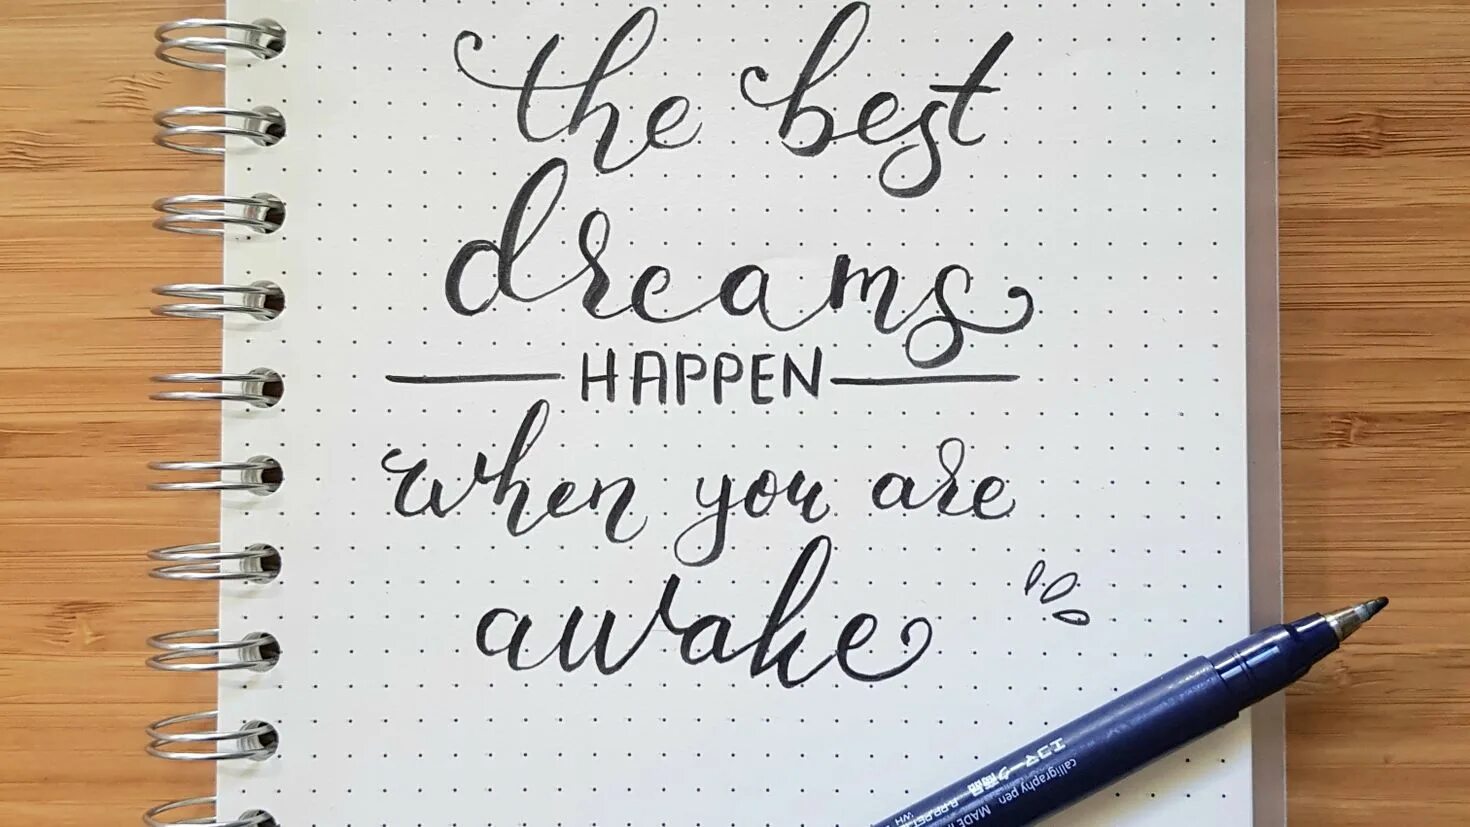 the best
dreams
HAPPEN
when you are
awake
エコマーク商品
calligraphy pen
MADE